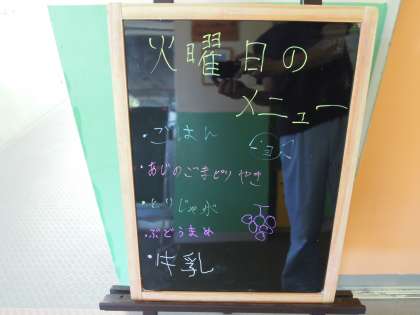 火曜日の
メニュー
・ごはん
・あじのごまどりやき
・とりじゃが
・ぶどうまめ
・牛乳